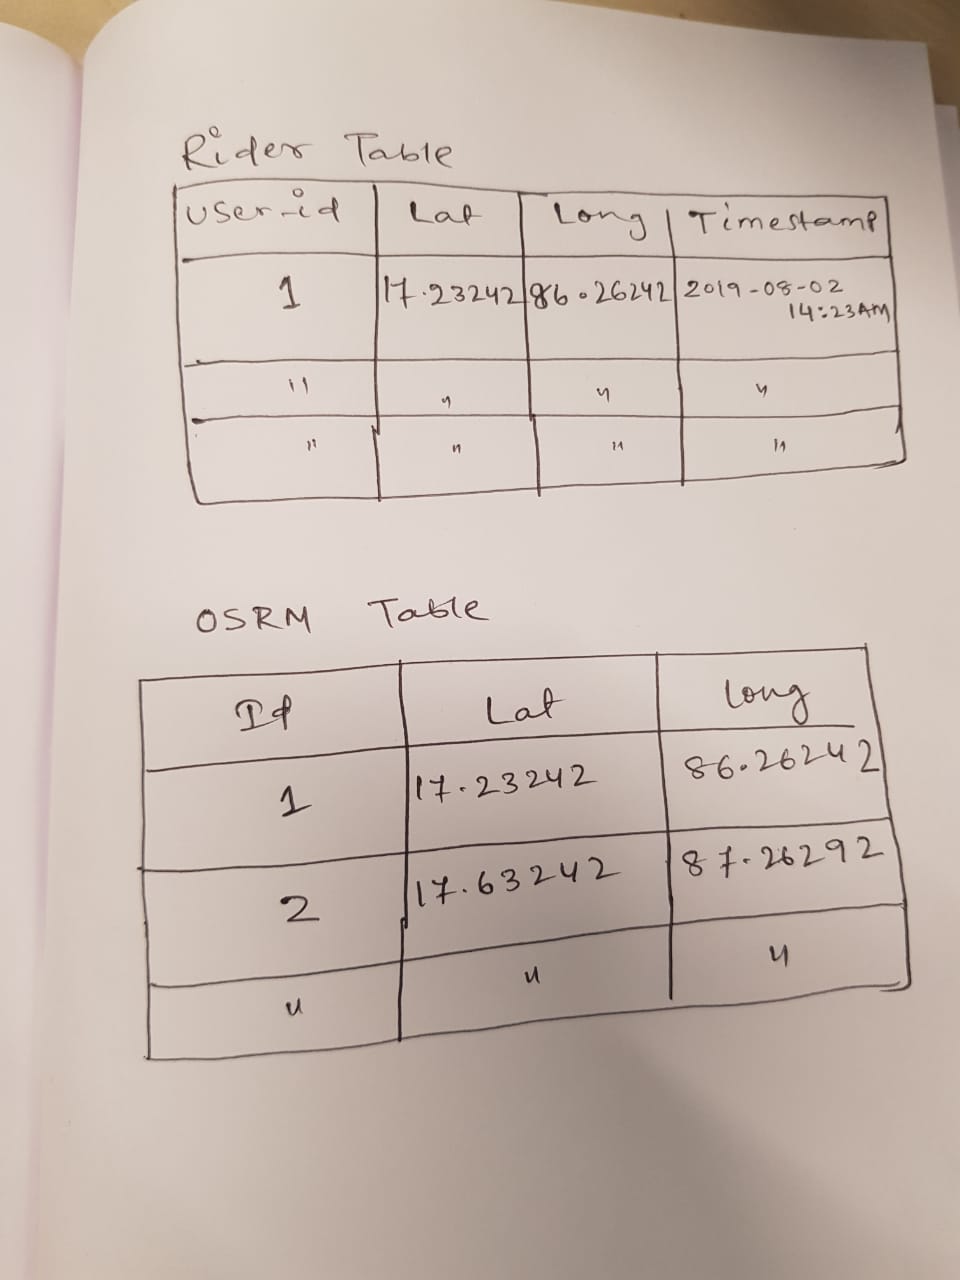 Rider Table
user-id Lat Long Timestamp
1 17.23242 86.26242 2019-08-02
14:23AM
" " " "
" " " "
OSRM Table
Id Lat Long
1 17.23242 86.26242
2 17.63242 87.26292
" " "